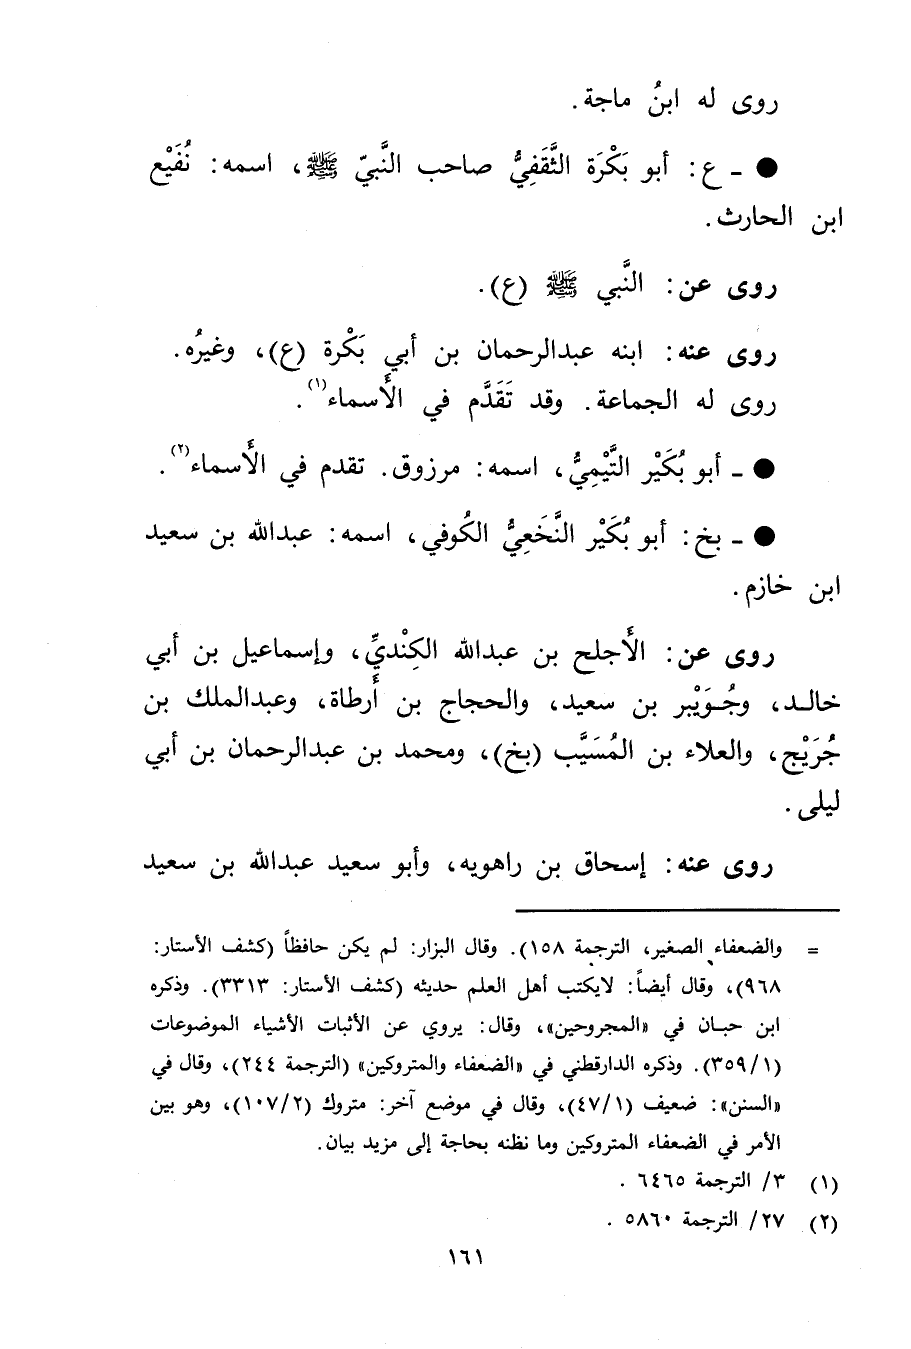 روى له ابنُ ماجة.
● ـ ع: أبو بَكْرَة الثَّقَفِيُّ صاحب النَّبيّ ﷺ، اسمه: نُفَيْع
ابن الحارث.
روى عن: النَّبي ﷺ (ع).
روى عنه: ابنه عبدالرحمان بن أبي بَكْرة (ع)، وغيرُه.
روى له الجماعة. وقد تَقَدَّم في الأَسماء(١).
● ـ أبو بُكَيْر التَّيْمِيُّ، اسمه: مرزوق. تقدم في الأَسماء(٢).
● ـ بخ: أبو بُكَيْر النَّخَعِيُّ الكُوفي، اسمه: عبدالله بن سعيد
ابن خازم.
روى عن: الأَجلح بن عبدالله الكِنْديِّ، وإسماعيل بن أبي
خالد، وجُوَيْبر بن سعيد، والحجاج بن أَرطاة، وعبدالملك بن
جُرَيْج، والعلاء بن المُسَيَّب (بخ)، ومحمد بن عبدالرحمان بن أبي
ليلى.
روى عنه: إسحاق بن راهويه، وأبو سعيد عبدالله بن سعيد
= والضعفاء الصغير، الترجمة ١٥٨). وقال البزار: لم يكن حافظاً (كشف الأستار:
٩٦٨)، وقال أيضاً: لايكتب أهل العلم حديثه (كشف الأستار: ٣٣١٣). وذكره
ابن حبان في «المجروحين»، وقال: يروي عن الأثبات الأشياء الموضوعات
(٣٥٩/١). وذكره الدارقطني في «الضعفاء والمتروكين» (الترجمة ٢٤٤)، وقال في
«السنن»: ضعيف (٤٧/١)، وقال في موضع آخر: متروك (١٠٧/٢)، وهو بين
الأمر في الضعفاء المتروكين وما نظنه بحاجة إلى مزيد بيان.
(١) ٣/ الترجمة ٦٤٦٥ .
(٢) ٢٧/ الترجمة ٥٨٦٠ .
١٦١